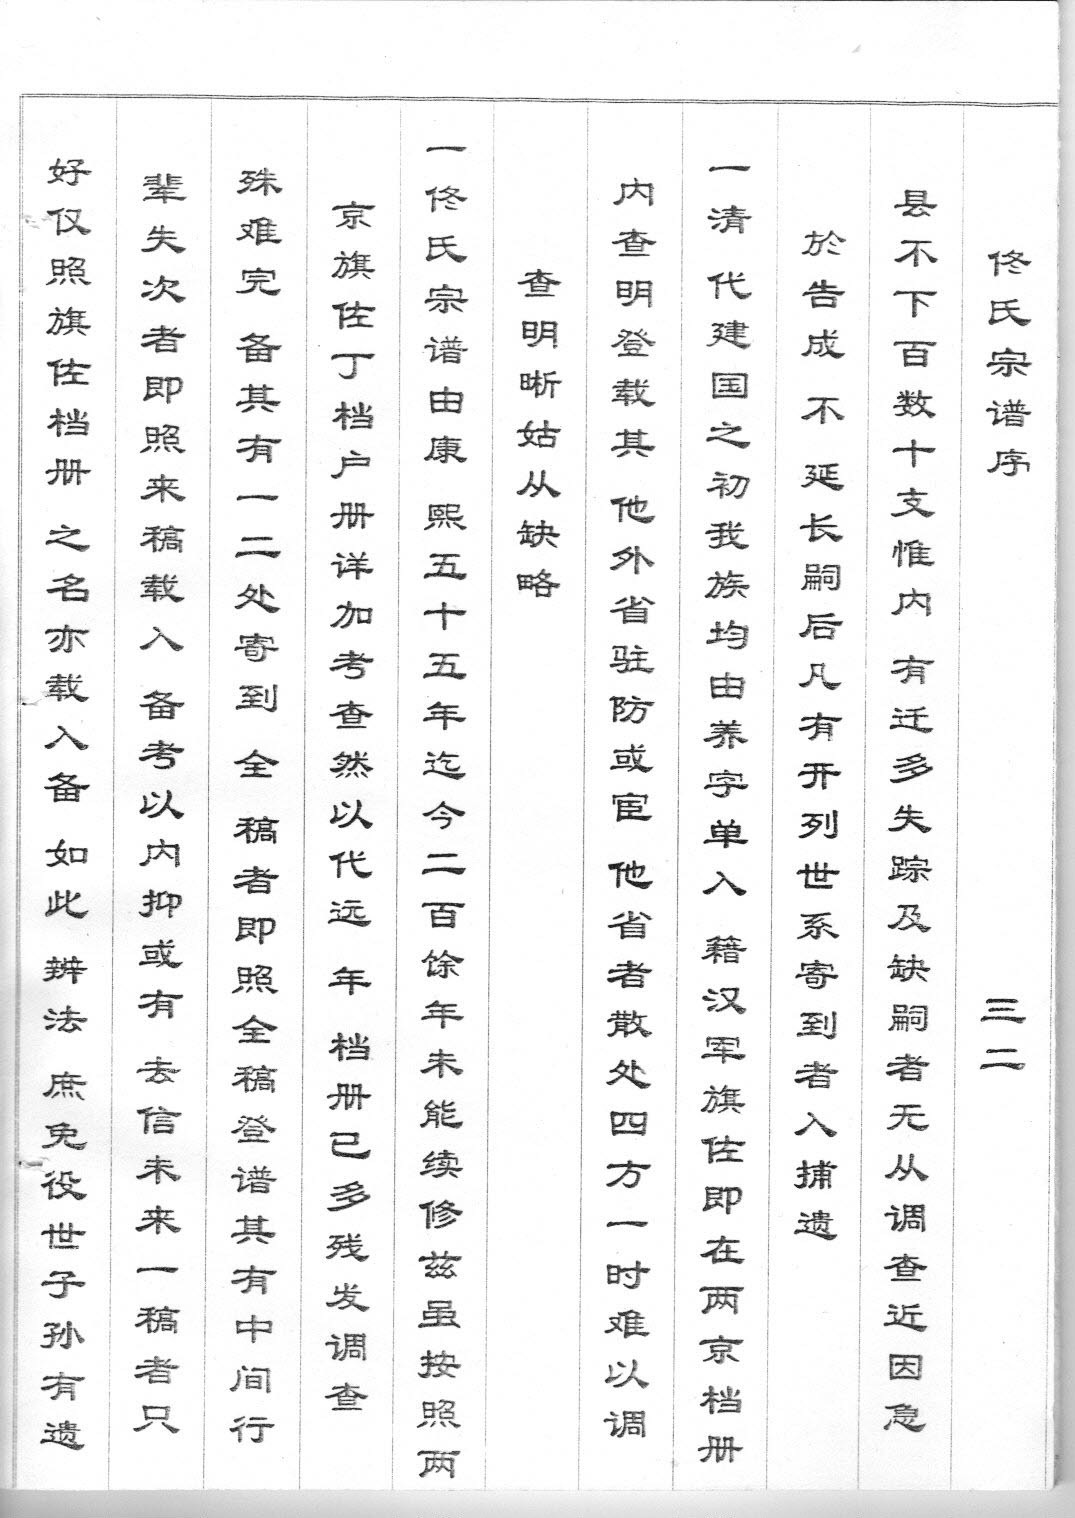 佟氏宗谱序 三二
县不下百数十支惟内有迁多失踪及缺嗣者无从调查近因急
於告成不延长嗣后凡有开列世系寄到者入捕遗
一清代建国之初我族均由养字单入籍汉军旗佐即在两京档册
内查明登载其他外省驻防或宦他省者散处四方一时难以调
查明晰姑从缺略
一佟氏宗谱由康熙五十五年迄今二百馀年未能续修兹虽按照两
京旗佐丁档户册详加考查然以代远年档册已多残发调查
殊难完备其有一二处寄到全稿者即照全稿登谱其有中间行
辈失次者即照来稿载入备考以内抑或有去信未来一稿者只
好仅照旗佐档册之名亦载入备如此辨法庶免役世子孙有遗